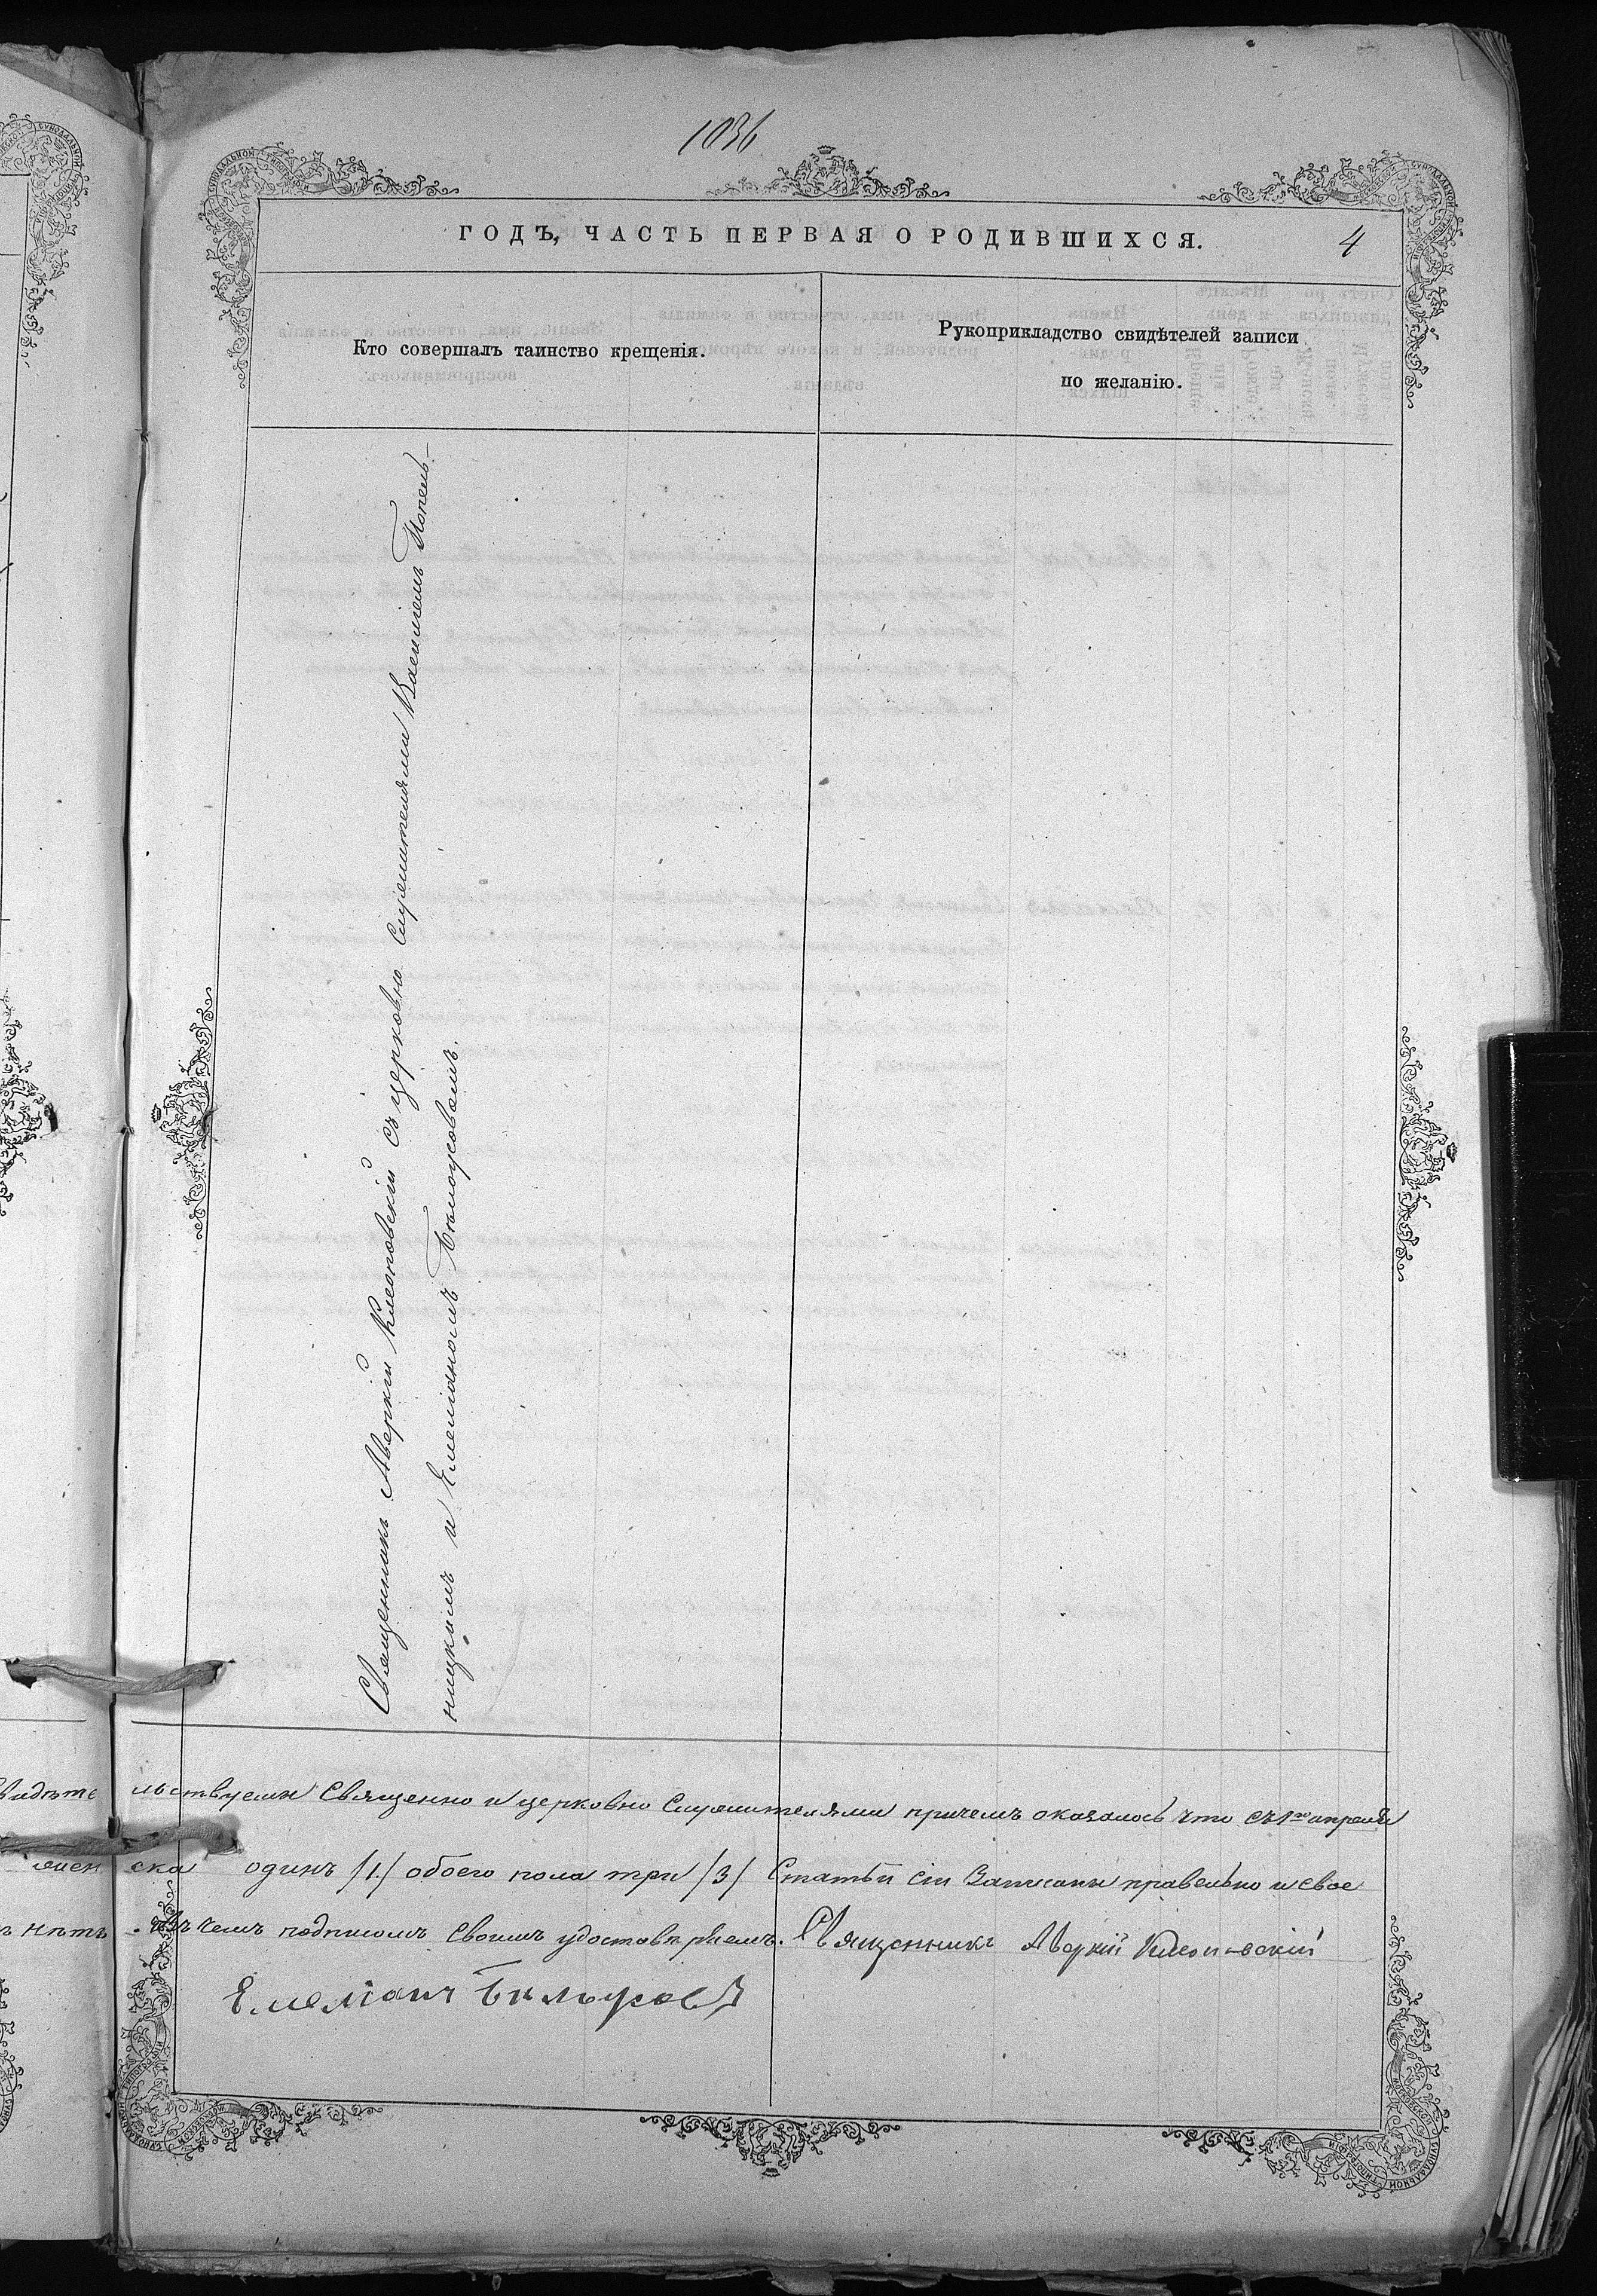 1036
ГОДЪ, ЧАСТЬ ПЕРВАЯ О РОДИВШИХСЯ.
4
Кто совершалъ таинство крещенія.
Рукоприкладство свидѣтелей записи
по желанію.
Священникъ Аверкій Клеоповскій съ церковно Служителями Василіемъ Попель-
ницкимъ и Емеліаномъ Бѣлоусовомъ.
льствуемы Священно и церковно Служителями причемъ оказалось что съ 1го апреля
ска одинъ /1/ обоего пола три /3/ Статьи сіи Записаны правельно и свое
въ чемъ подписомъ Своимъ удостовѣряемъ. Священникъ Аверкій Клеоповскій
нѣтъ
Емеліанъ Бѣлоусовъ